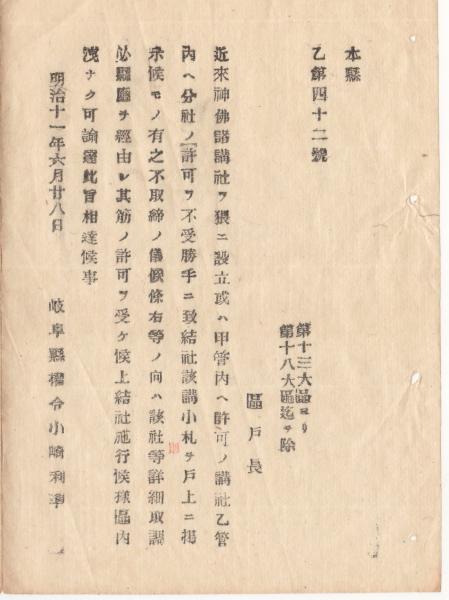 本縣
乙第四十二號
第十三大區ヨリ
第十八大區迄ヲ除
區戸長
近來神佛諸講社ヲ猥ニ設立或ハ甲管内ヘ許可ノ講社乙管
内ヘ分社ノ許可ヲ不受勝手ニ致結社該講小札ヲ戸上ニ掲
示候モノ有之不取締ノ儀候條右等ノ向ハ該社等詳細取調
必縣廳ヲ經由シ其筋ノ許可ヲ受ケ候上結社施行候樣區内
洩ナク可諭達此旨相達候事
明治十一年六月廿八日
岐阜縣權令小崎利準